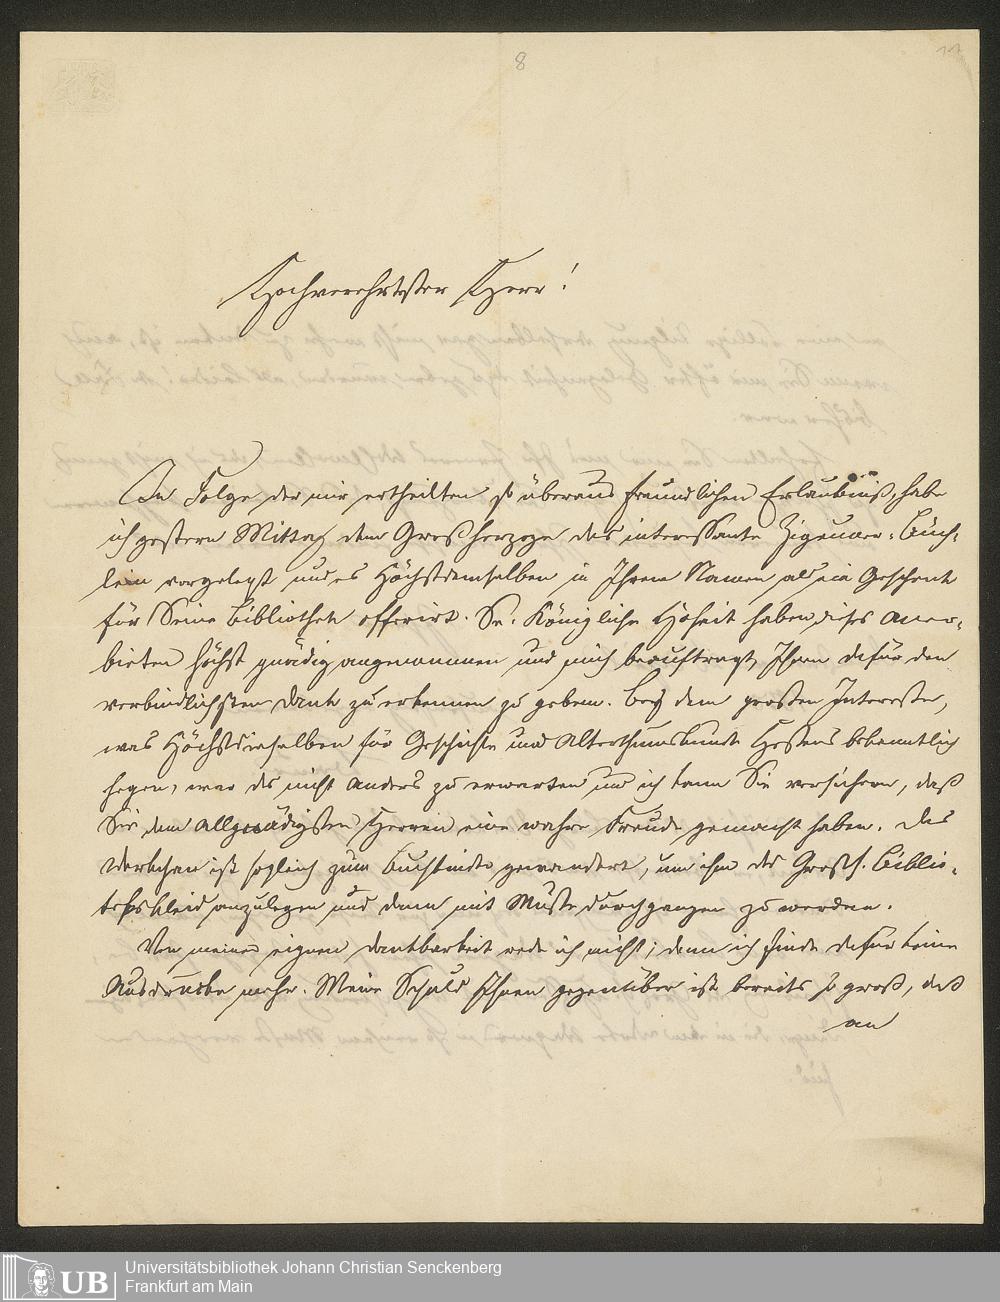 8
Hochverehrtester Herr!
In Folge der mir ertheilten so überaus freundlichen Erlaubniß, habe
ich gestern Mittag dem Großherzoge das interessante Zigeuner-Büch-
lein vorgelegt und es Höchstdemselben in Ihrem Namen als ein Geschenk
für Seine Bibliothek offerirt. Se. Königliche Hoheit haben dieses Aner-
bieten höchst gnädig angenommen und mich beauftragt, Ihnen dafür den
verbindlichsten Dank zu erkennen zu geben. Bey dem großen Interesse,
was Höchstdieselben für Geschichte und Alterthumskunde Hessens bekanntlich
hegen, war das nicht anders zu erwarten und ich kann Sie versichern, daß
Sie dem Allergnädigsten Herrn eine wahre Freude gemacht haben. Das
Werkchen ist sogleich zum Buchbinder gewandert, um ihm das Großh. Biblio-
thekskleid anzulegen und dann mit Muße durchgangen zu werden.
Von meiner eignen Dankbarkeit rede ich nicht; denn ich finde dafür keine
Ausdrücke mehr. Meine Schuld Ihnen gegenüber ist bereits so groß, daß
an
UB
Universitätsbibliothek Johann Christian Senckenberg
Frankfurt am Main